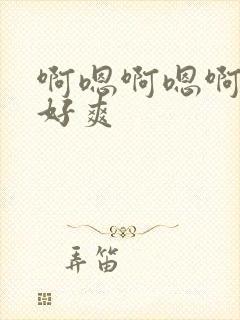 啊嗯啊嗯啊
好爽
弄笛